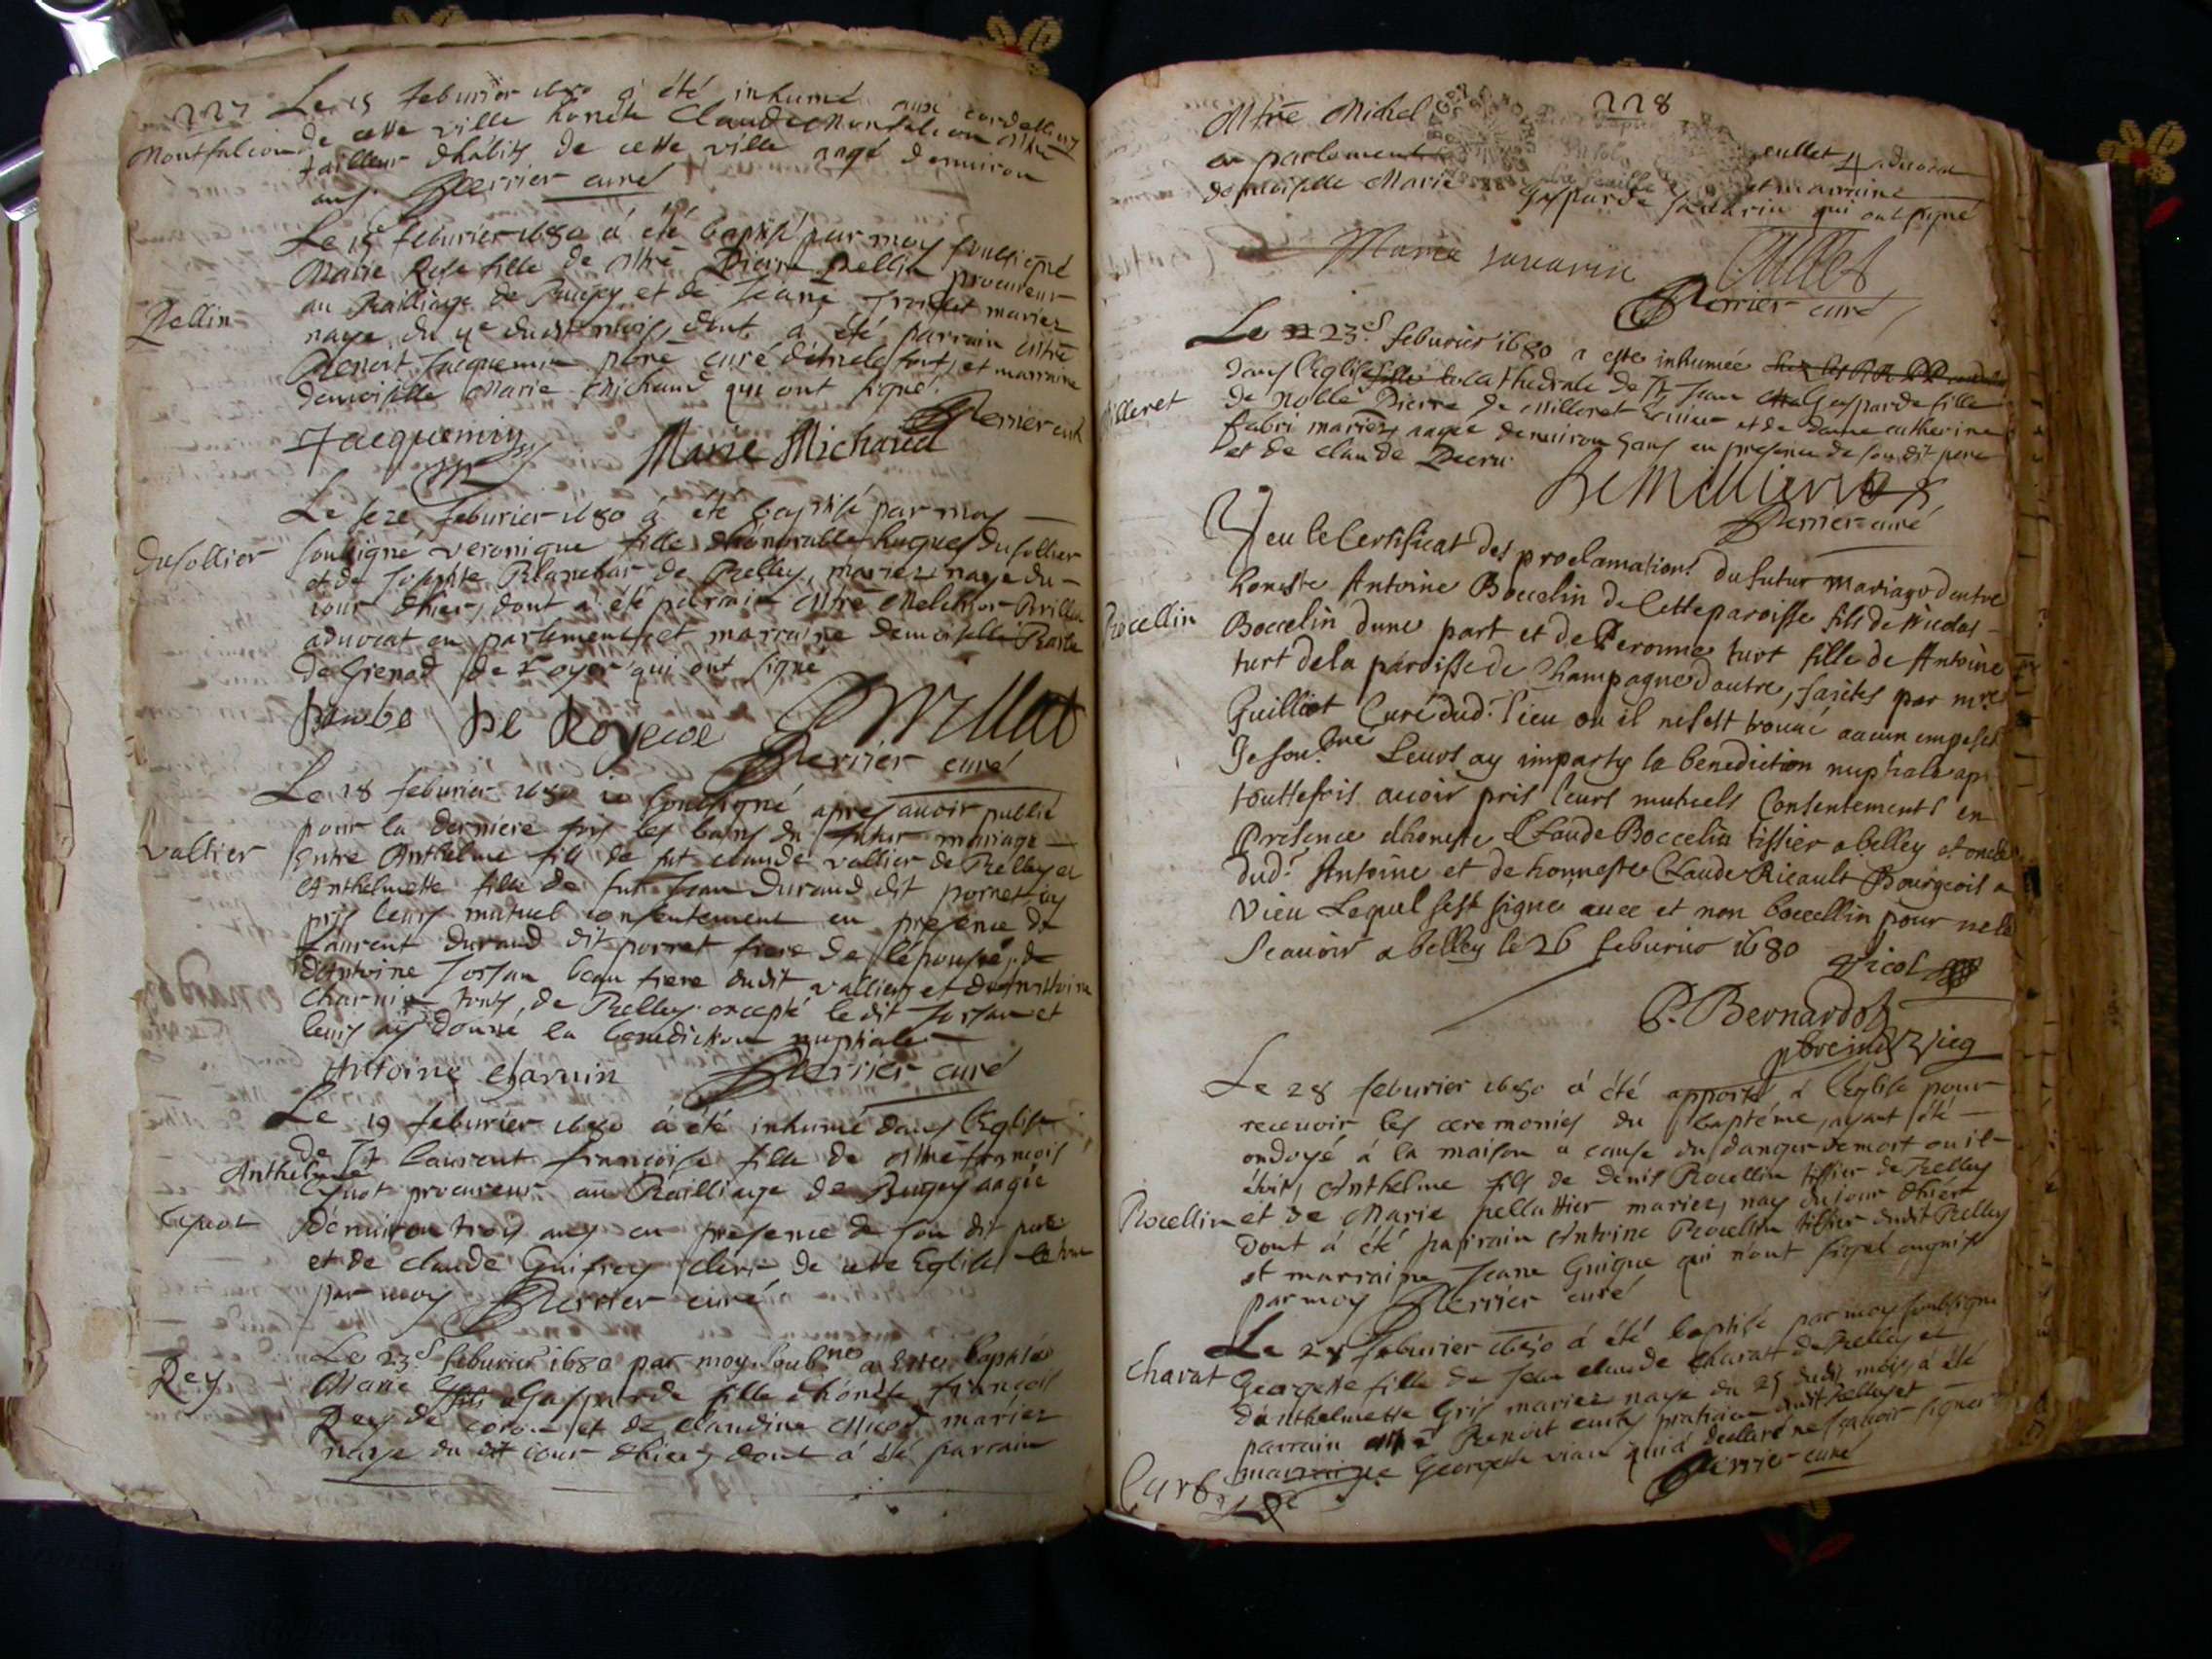 227
Le 15 feburier 1680 a été inhumé aux cordelliers
Montfalcon de cette ville honete Claude Montfalcon Mtre
tailleur dhabits de cette ville aagé denuiron
ans. Perrier curé
Le 15e feburier 1680 á été baptisé par moy soubsigné
Marie Rose fille de Mtre Pierre Bellin procureur
au Bailliage de Bugey et de Jeane mariez
Bellin
naye du 4e dudit mois, dont a été parrain Mtre
Benoit Jacquemin curé et marraine
demoiselle Marie Michaud qui ont signé.
Perrier curé
Jacquemin Marie Michaud
Le seze feburier 1680 á été baptisé par moy
Dusollier soubsigné Veronique fille dhonorable Hugues Dusollier
et de Josephte Blanchar de Belley, mariez naye du
iour dhier, dont a été parrain Mtre Melchior Brillat
aduocat en parlement et marraine demoiselle Barbe
de Grenod de Royer qui ont signé
Barbe De Royere Brillat
Perrier curé
Le 18 feburier 1680 ie soubsigné apres auoir publié
pour la derniere fois les bans du futur mariage
Vallier entre Anthelme fils de fut Claude Vallier de Belley et
Anthelmette fille de fut Jean Durand dit pornet, ay
pris leurs mutuel consentement en presence de
Laurent Durand dit porret frere de lépousée, de
dAntoine Jorsan beau frere dudit Vallier, et dAnthoine
Charnin tous de Belley excepté ledit Jorsan et
leurs ay donné la benediction nuptiale
Antoine Charnin Perrier curé
Le 19 feburier 1680 á été inhumé dans lEglise
de St Laurent francoise fille de Mtre francois
Anthelme
Cyuot procureur au Bailliage de Bugey aagée
Cyuot dénuiron trois ans en presence de son dit pere
et de claude Guifrey clerc de cete Eglise
par moy Perrier curé
Le 23e feburier 1680 par moy soubsne a estes baptisée
Rey Marie Gasparde fille dhonete francois
Rey de et de Claudine Nicod mariez
naye du dit iour dhier, dont á été parrain
228
Mtre Michel Cullet aduocat
en parlement et marraine
demoiselle Marie Gasparde Sauarin qui ont signé
Marie Sauarin Cullet
Perrier curé
Le 23e feburier 1680 a estes inhumée
dans lEglise cathedrale de St Jean Gasparde fille
Milleret de Noble Pierre de Milleret et de Dame catherine
fabri mariez, aagée denuiron ans en presence de son dit pere
et de claude Decru
De Millieret
Perrier curé
Veu le Certificat des proclamations du futur Mariage dentre
honeste Antoine Boccelin de Cette paroisse fils de Nicolas
Bocellin Boccelin dune part et de Peronne turt fille de Antoine
turt dela paroisse de Champagne dautre, faictes par mre
Guilliot Curé dud. lieu ou il ne sest trouué aucun empesch
Je sous.gné Leurs ay imparty la benediction nuptiale apr
touttefois auoir pris leurs mutuels Consentements en
Presence dhoneste Claude Boccelin tissier a belley et oncle
dud.t Antoine et de honneste Claude Ricault Bourgeois a
Vieu Lequel sest signe auec et non boccellin pour ne le
scauoir a belley le 26 feburier 1680
P. Bernardot
pbre ind Vicq
Le 28 feburier 1680 á été apporté á lEglise pour
receuoir les ceremonies du baptéme, ayant été
ondoyé á la maison a cause du danger de mort ou il
étoit, Anthelme fils de Denis Bocellin tissier de Belley
Bocellin et de Marie pellattier mariez, nay du jour dhier
dont á été parrain Antoine Bocellin tissier dudit Belley
et marraine Jeane Guigue qui nont signé enquis
par moy Perrier curé
Le 28 feburier 1680 á été baptisé par moy soubsigné
Charat Georgette fille de Jean claude Charat de Belley et
dAnthelmette Gris mariez naye du 25 dudit mois, á été
parrain Mtre Benoit praticien dudit Belley et
marraine Georgette vian qui á declaré ne scauoir signer
Perrier curé